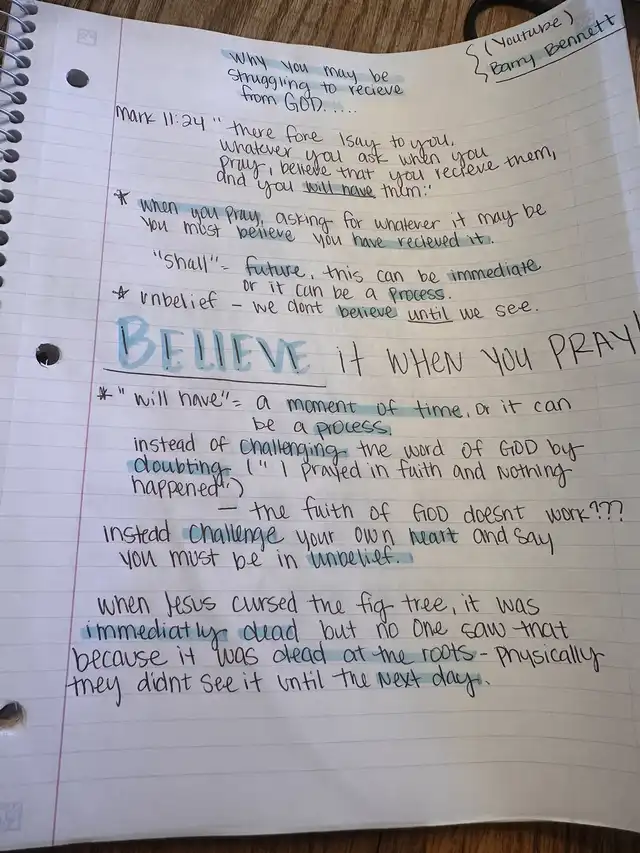 Why you may be
struggling to recieve
from GOD.....
{ (Youtube)
Barry Bennett
Mark 11:24 "there fore I say to you,
whatever you ask when you
pray, believe that you recieve them,
and you will have them."
* When you pray, asking for whatever it may be
you must believe you have recieved it.
"Shall" = future, this can be immediate
or it can be a process.
* unbelief - we dont believe until we see.
BELIEVE it WHEN YOU PRAY!
* "will have" = a moment of time, or it can
be a process.
instead of challenging the word of GOD by
doubting. (" I prayed in faith and nothing
happened")
- the faith of GOD doesnt work???
instead challenge your own heart and say
you must be in unbelief.
when Jesus cursed the fig tree, it was
immediatly dead but no one saw that
because it was dead at the roots - physically
they didnt see it until the next day.